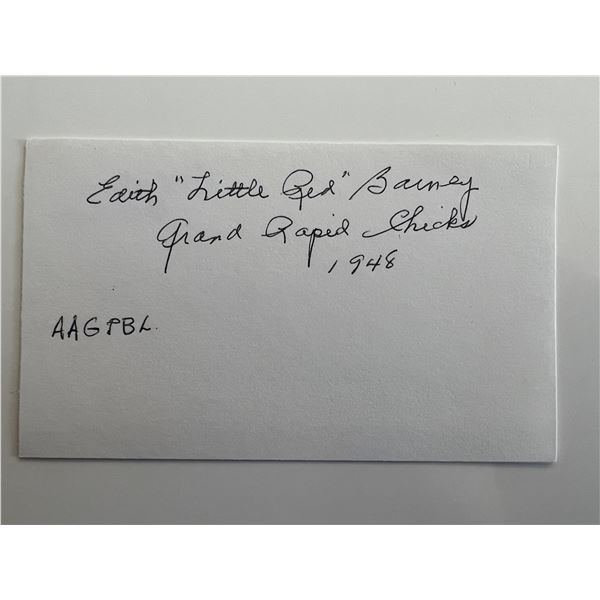 Edith "Little Red" Barney
Grand Rapid Chicks
1948
AAGPBL.